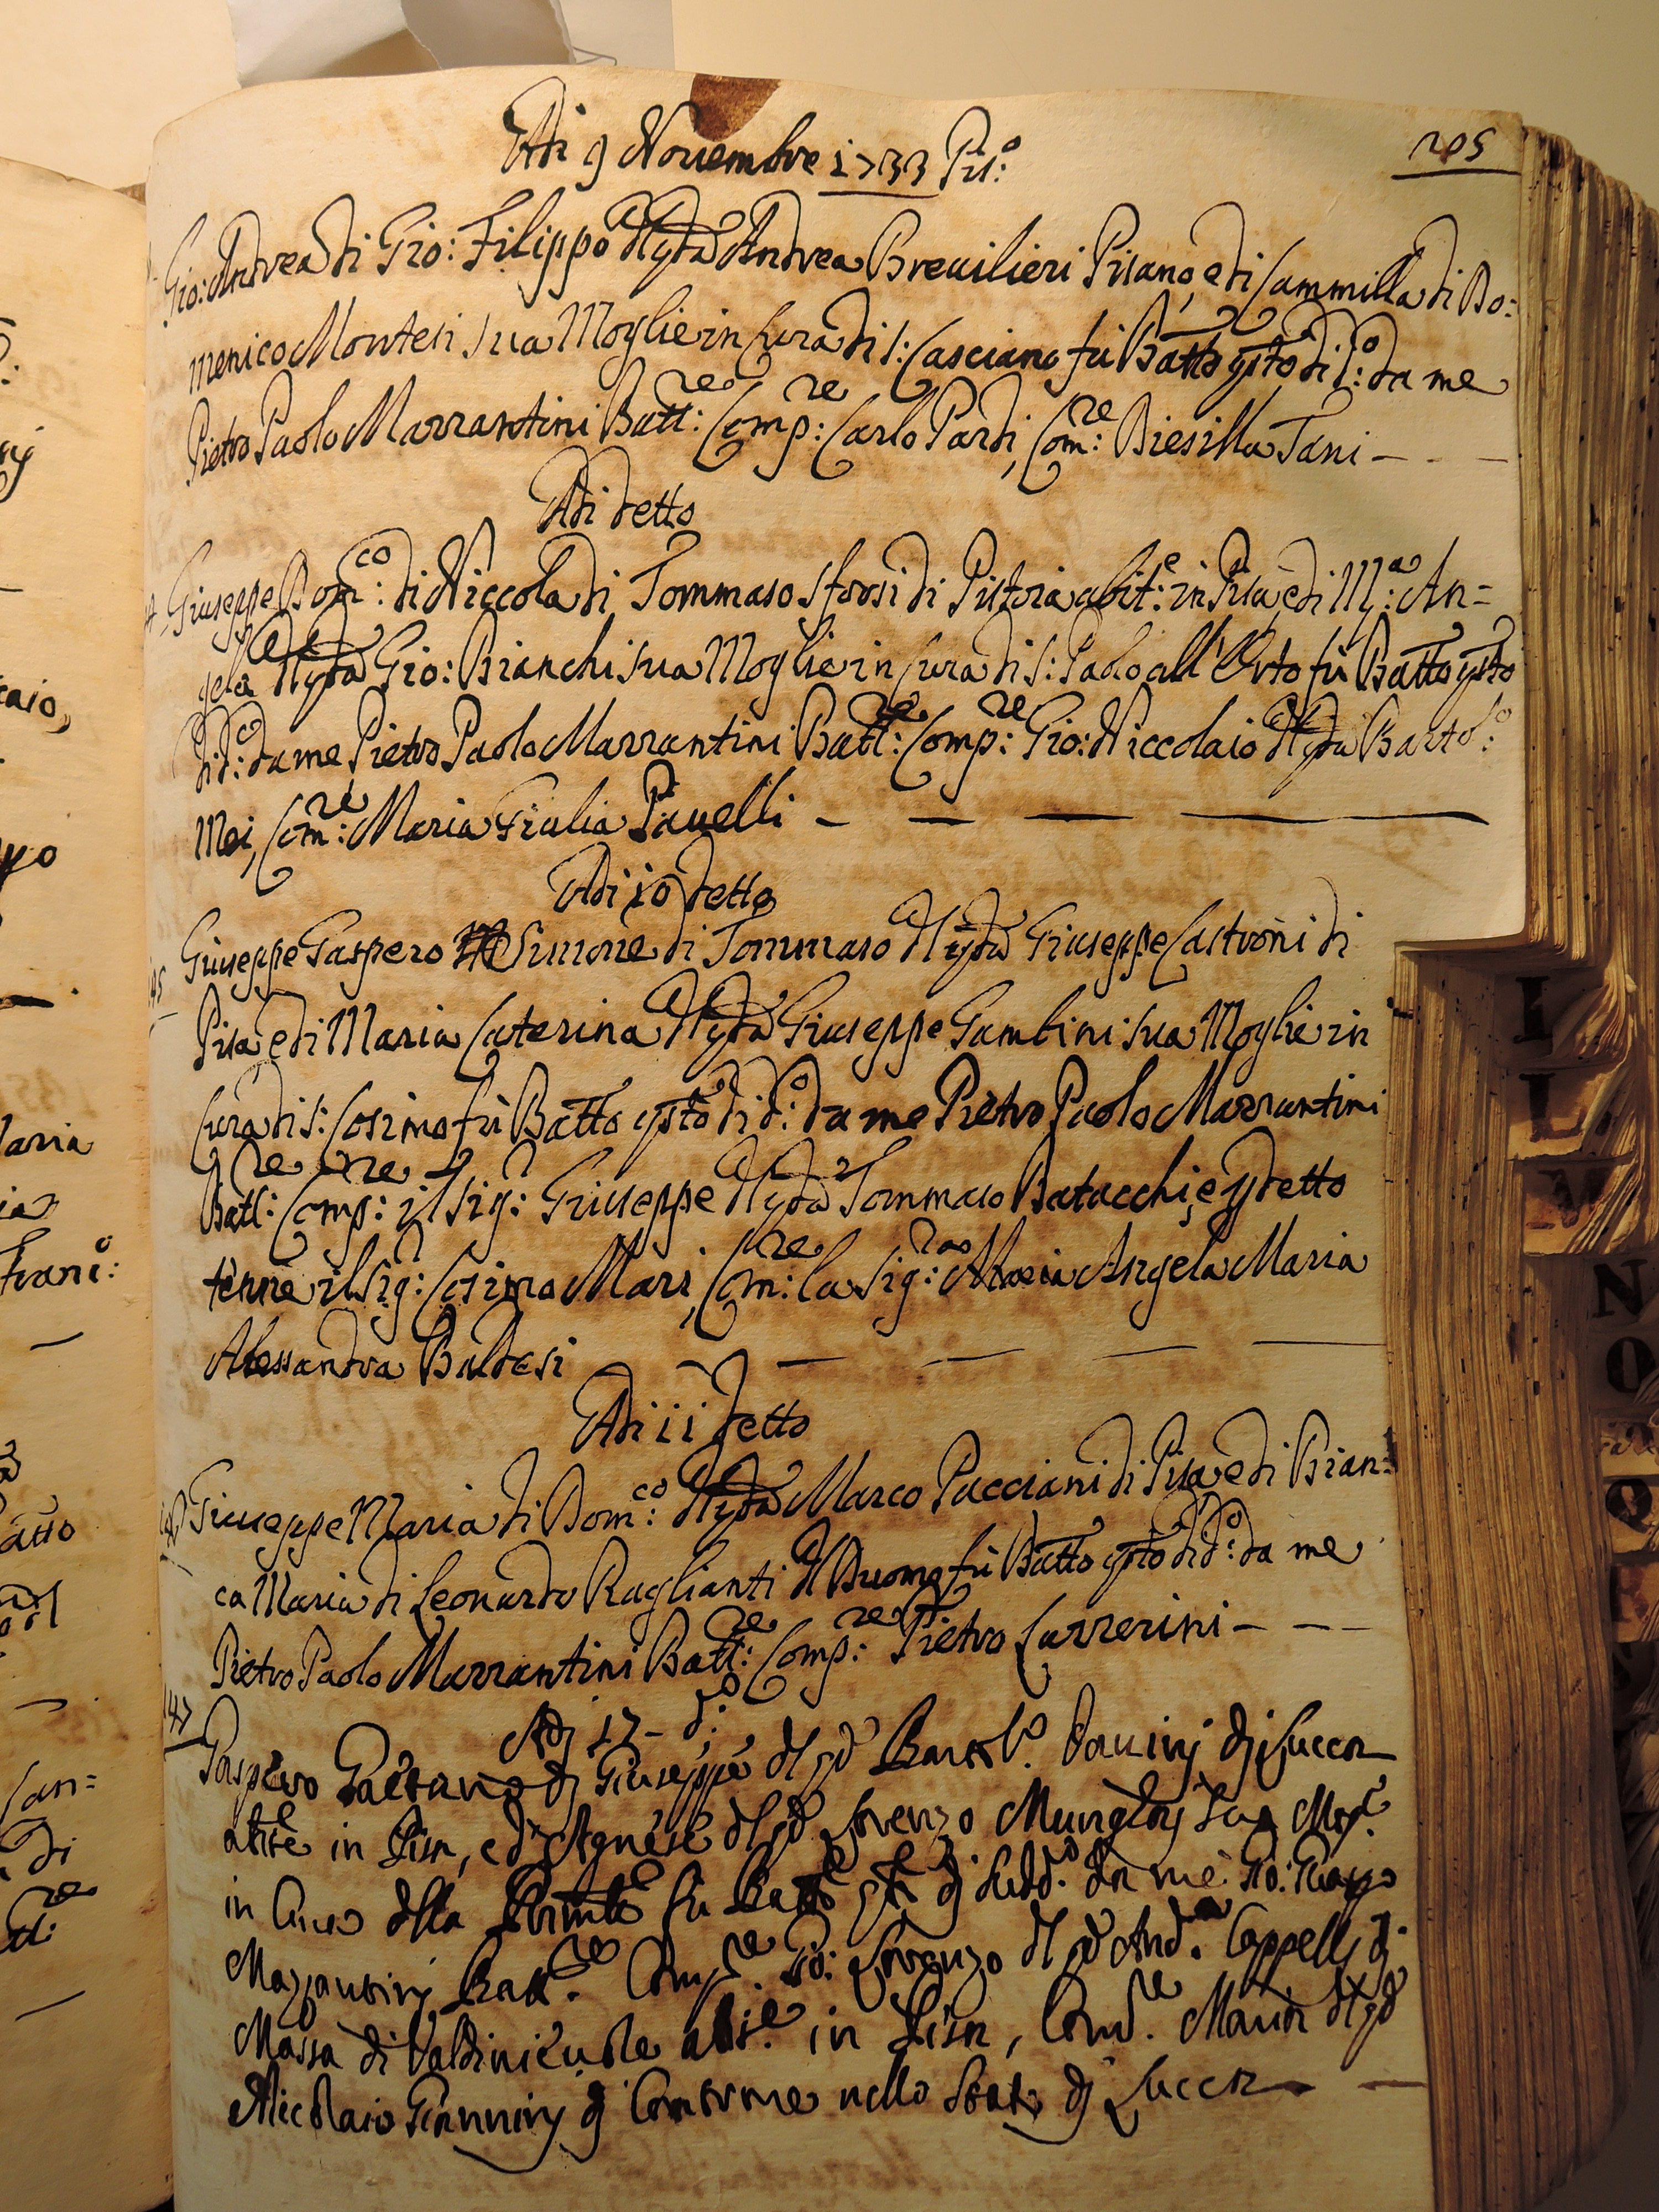 Adi 9 Novembre 1733 Pis:o
205
Gio: Andrea di Gio: Filippo del qd Andrea Brevilieri Pisano, e di Cammilla di Do:
menico Montesi sua Moglie in Cura di S: Casciano fù Batto qsto di d:o da me
Pietro Paolo Marrantini Batt:re Comp:re Carlo Pardi, Com:re Tani
Adi detto
Giuseppe Dom:co di Niccola di Tommaso Sforsi di Pistoia abit:e in Pisa, e di M:a An=
gela del qd Gio: Bianchi sua Moglie in Cura di S: Paolo all'Orto fù Batto qsto
di d:o da me Pietro Paolo Marrantini Batt:re Comp:re Gio: Niccolaio del qd Barto:o
Mei, Com:re Maria Giulia Pavelli
Adi 10 detto
145
Giuseppe Gaspero Simone di Tommaso del qd Giuseppe Castroni di
Pisa e di Maria Caterina del qd Giuseppe Gambini sua Moglie in
Cura di S: Cosimo fù Batto qsto di d:o da me Pietro Paolo Marrantini
Batt:re Comp:re il Sig:r Giuseppe del qd Tommaso Batacchi, e p detto
tenne il Sig:r Cosimo Mari, Com:re la Sig:ra Maria Angela Maria
Alessandra Baldesi
Adi 11 detto
Giuseppe Maria di Dom:co del qd Marco Pacciani di Pisa e di Bian=
ca Maria di Leonardo Raglianti del Duomo fù Batto qsto di d:o da me
Pietro Paolo Marrantini Batt:re Comp:re Pietro Carrerini
147
Adj 17 d:o
Gaspero Gaetano dj Giuseppe del qd Bartol:o dj Lucca
abite in Pisa, e d'Agnese del qd Lorenzo sua Mog:e
in Cura della fu Batto qsto dj da me
Batt:re Comp:re Gio: Lorenzo del qd And:a Cappellj dj
Massa di Valdinievole abi:e in Pisa, Com:re Maria del qd
Nicolaio Gianninj dj nello Stato dj Lucca